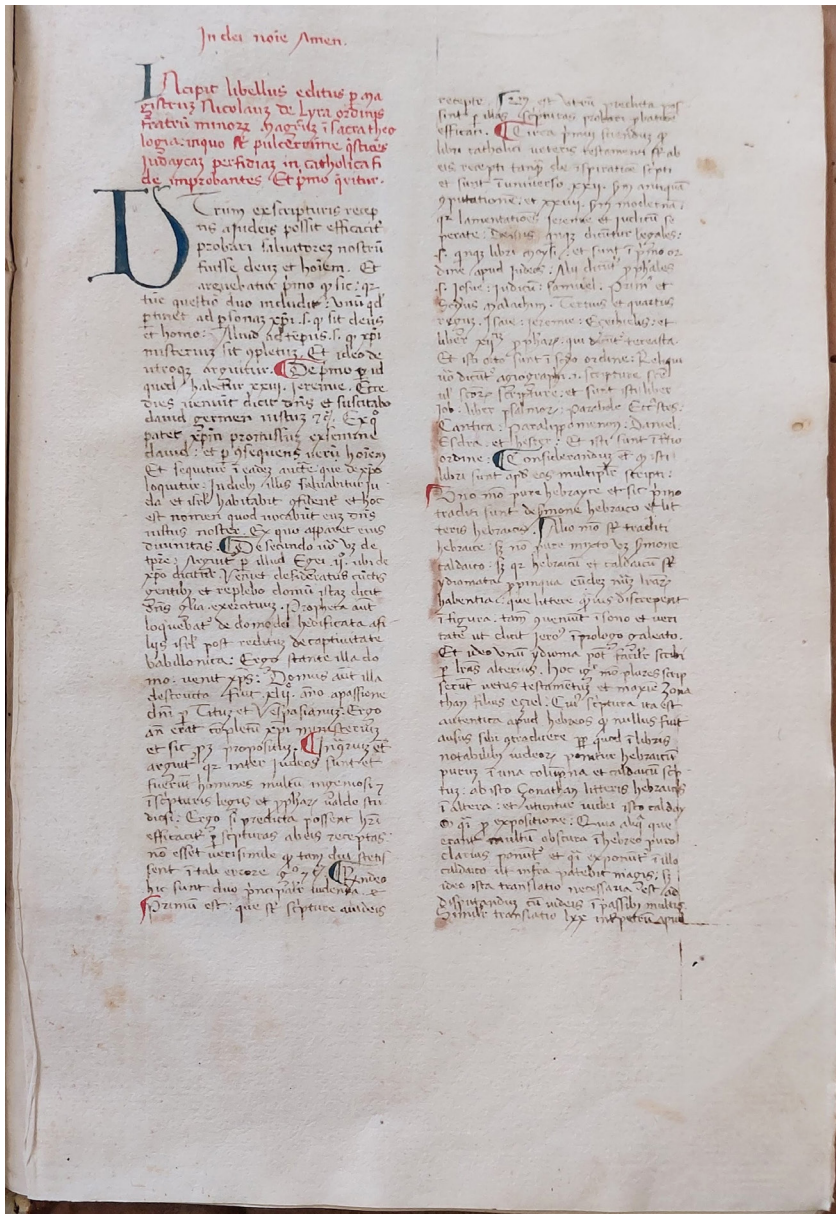 In dei noīe Amen.
INcipit libellus editus p̱ ma
gistruȝ Nicolauȝ de Lyra ordinis
fratrū minorꝝ magrūȝ ī sacra theo
logia: in quo sūt pulcerrime q̄stiōes
iudaycaȝ perfidiaȝ in catholica fi
de improbantes. Et p̱mo q̄ritur.
UTrum ex scripturis recep
tis a iudeis possit efficacit̄
probari salvatoreȝ nostrū
fuisse deuȝ et hoīem. Et
arguebatur p̱mo ꝙ sic: qr̄
hec questio duo includit: Vnū qd̄
p̱tinet ad p̱sonaȝ xp̄i .s. ꝙ sit deus
et homo: Aliud ad tēpus .s. ꝙ xp̄i
misterium sit ꝯpletuȝ. Et ideo de
utroqȝ arguitur. De p̱mo p̱ id
quod habetur xxiii. Ieremie. Ecce
dies venient dicit dn̄s et suscitabo
david germen iustuȝ ⁊c̄. Ex q̊
patet xp̄m promissuȝ ex semine
david: et p̱ ꝯsequens verū hoīem
Et sequitur ī eadeȝ aucte: que de xp̄o
loquitur. In dieb̄ illis salvabitur iu
da et isrl̄ habitabit ꝯfident̄ et hoc
est nomen quod vocabūt euȝ dn̄s
iustus noster. Ex quo apparet eius
divinitas. De secundo v̊ vȝ de
tp̄re: Arguit̄ p̱ illud Egei .ij. ubi de
xp̄o dicitur. Veniet desideratus cūctis
gentib̄ et replebo domū istaȝ dicit
dn̄s gl̄ia. exercituuȝ. Propheta aut̄
loquebat̄ de domo dei hedificata a fi
liis isrl̄ post reditūȝ de captivitate
babillonica: Ergo stante illa do
mo. venit xp̄s: Domus aut̄ illa
destructa fuit .xlii. āno a passione
dn̄i p̱ Tituȝ et Vespasianuȝ. Ergo
an̄ erat cōpletū xp̄i misteriuȝ
et sic pȝ propositūȝ. In ꝯriuȝ et̄
arguit̄ qr̄ inter iudeos sunt et
fuerūt homines multū ingeniosi ⁊
ī scripturis legis et p̱phaꝝ valde stu
diosi: Ergo si predicta possent hr̄i
efficacit̄ p̱ scripturas ab eis receptas
nō esset verisimile ꝙ tam diu stetis
sent ī tali errore g̊ ⁊c̄. Rn̄deo
hic sunt duo p̱ncipalit̄ videnda. et
Primum est: que sūt scripture a iudeis
recepte. Itē et utrū predicta pos
sint p̱ illas scripturas probari
efficaci. Circa p̱mum sciendum ꝙ
libri catholici veteris testamenti sūt ab
eis recepti tanqȝ de ispiratiōe sc̄pti
et sunt ī universo .xxii. sm̄ antiquā
ꝯputatione: et xxiiii. sm̄ modernā:
qr̄ lamentationes Ieremie et iudicū se
perate: quinqȝ dicūtur legales:
.s. quinqȝ libri moysi: et sunt ī p̱mo or
dine apud iudeos: Alii dicūt̄ p̱phales
.s. Iosue: iudicū: Samuel. Prim̄ et
Scd̄us malachim: Tertius et quartus
regum. Isaie: Ieremie: Eȝechielis: et
liber xii p̱phaꝝ: qui dicūt̄ tereasra.
Et isti octo sunt ī sc̄do ordine: Reliqui
v̊ dicūt̄ agiographi .i. scripture
ul̄ scōꝝ scripture: et sunt isti liber
iob. liber psalmoꝝ: Parabole Ecc̄stes:
Cantica: Paralipomenon: Daniel:
Esdra. et hester: Et isti sunt ī t̄tio
ordine: Considerandūȝ et̄ ꝙ isti
libri sunt apd̄ eos multiplic̄ scripti:
Vno mō pure hebrayce et sic p̱mo
traditi sunt de s̄mone hebraico et lit
teris hebraicis. Alio mō sūt traditi
hebraice: sȝ nō pure mixto vȝ s̄mone
caldaico: sȝ qr̄ hebraicū et caldaicū sūt
ydiomata p̱pinqua eūdeȝ nūȝ lr̄aꝝ
habentia: que littere discrepent
ī figura: tam̄ ꝯveniūt ī sono et veri
tate: ut dicit Iero⁹ ī prologo galeato.
Et ideo unū ydioma pōt faciliter scribi
p̱ lr̄as alterius. Hoc ig̊ mō plures scrip
serūt vetus testamentuȝ et maxie Iona
than filius eȝiel: Cui⁹ sc̄ptura ita est
autentica apud hebreos ꝙ nullus fuit
ausus sibi ꝯtradicere p̱p̱ quod ī libris
notabilib̄ iudeoꝝ ponitur hebraicūȝ
purūȝ ī una colūpna et caldaicū sc̄p
tuȝ: ab isto Ionathan litteris hebraicis
ī altera: et utuntur iudei isto calday
co q̄si p̱ expositione: Quia aliq̄ que
erāt multū obscura ī hebreo puro
clarius ponūt̄ et q̄si exponūt̄ ī illo
caldaico ut infra patebit magis: sȝ
ideo ista translatio necessaria est ad
disputandūȝ cū iudeis ī passib̄ multis.
Similr̄ translatio lxx int̄p̱etū apud